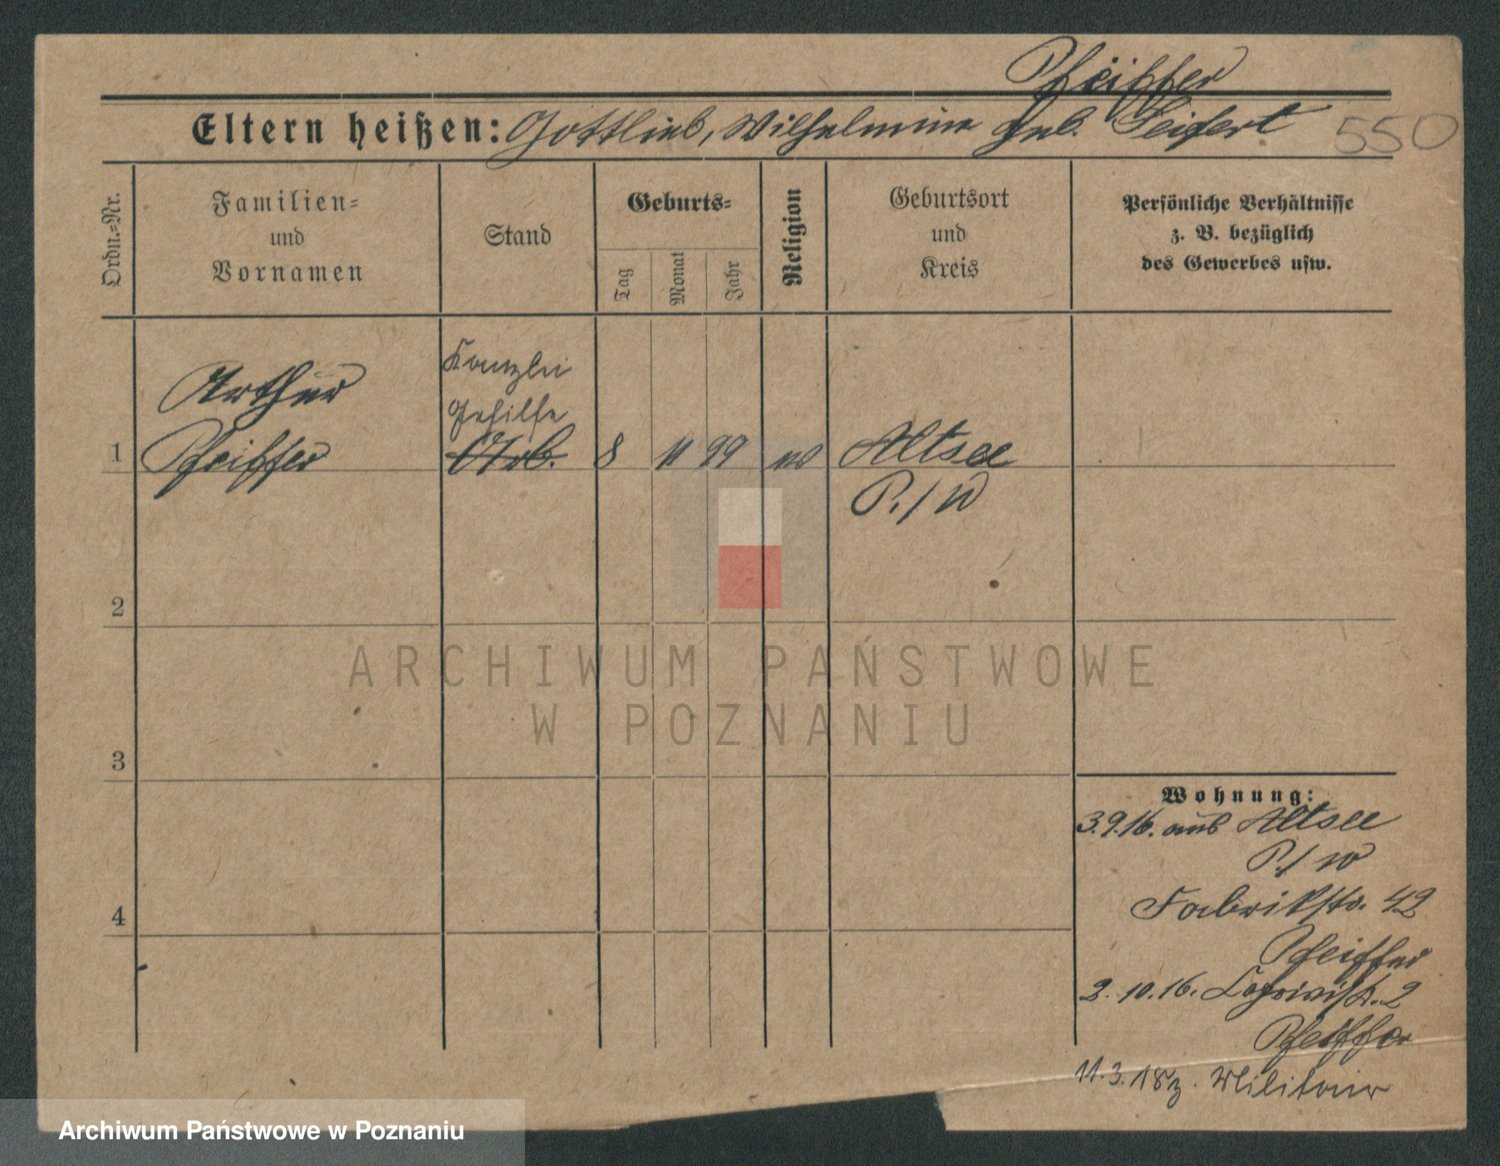 Pfeiffer
Eltern heißen: Gottlieb, Wilhelmine geb. Seifert 550
Ordn.=Nr.
Familien=
und
Vornamen
Stand
Geburts=
Tag
Monat
Jahr
Religion
Geburtsort
und
Kreis
Persönliche Verhältnisse
z. B. bezüglich
des Gewerbes usw.
1
Arthur
Pfeiffer
Kanzlei
Gehilfe
Arb.
8
11
99
Altsee
P./W
2
3
4
ARCHIWUM PAŃSTWOWE
W POZNANIU
Wohnung:
3.9.16. aus Altsee
P./W
Fabrikstr. 42
Pfeiffer
2.10.16. 2
Pfeiffer
11.3.18 z. Militair
Archiwum Państwowe w Poznaniu